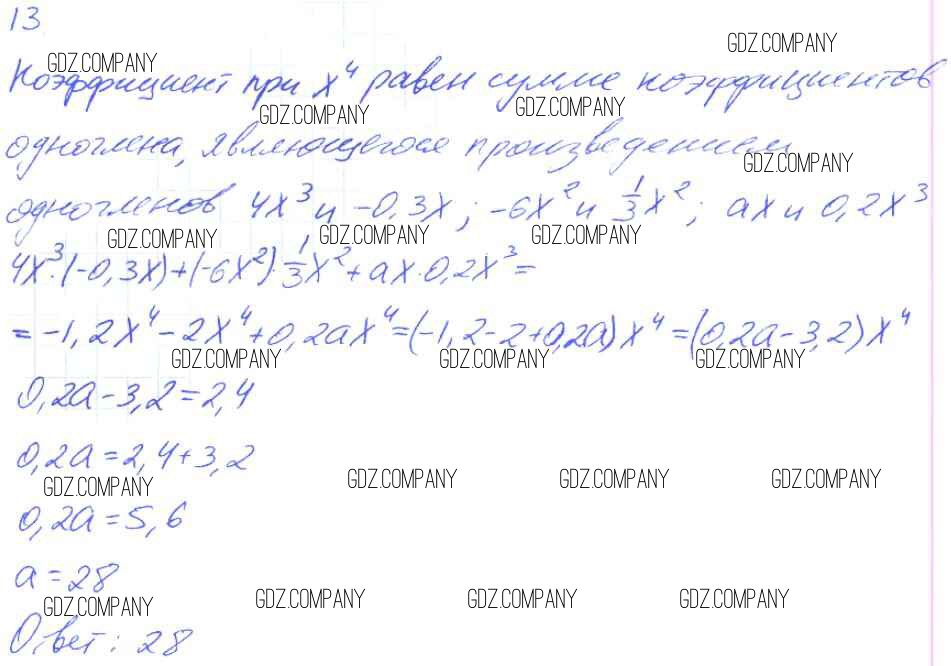 13
GDZ.COMPANY GDZ.COMPANY
Коэффициент при x⁴ равен сумме коэффициентов
GDZ.COMPANY GDZ.COMPANY
одночлена, являющегося произведением
GDZ.COMPANY
одночленов 4x³ и -0,3x; -6x² и 1/3x²; ax и 0,2x³
GDZ.COMPANY GDZ.COMPANY GDZ.COMPANY
4x³·(-0,3x)+(-6x²)·1/3x²+ax·0,2x³=
=-1,2x⁴-2x⁴+0,2ax⁴=(-1,2-2+0,2a)x⁴=(0,2a-3,2)x⁴
GDZ.COMPANY GDZ.COMPANY GDZ.COMPANY
0,2a-3,2=2,4
0,2a=2,4+3,2
GDZ.COMPANY GDZ.COMPANY GDZ.COMPANY GDZ.COMPANY
0,2a=5,6
a=28
GDZ.COMPANY GDZ.COMPANY GDZ.COMPANY GDZ.COMPANY
Ответ: 28